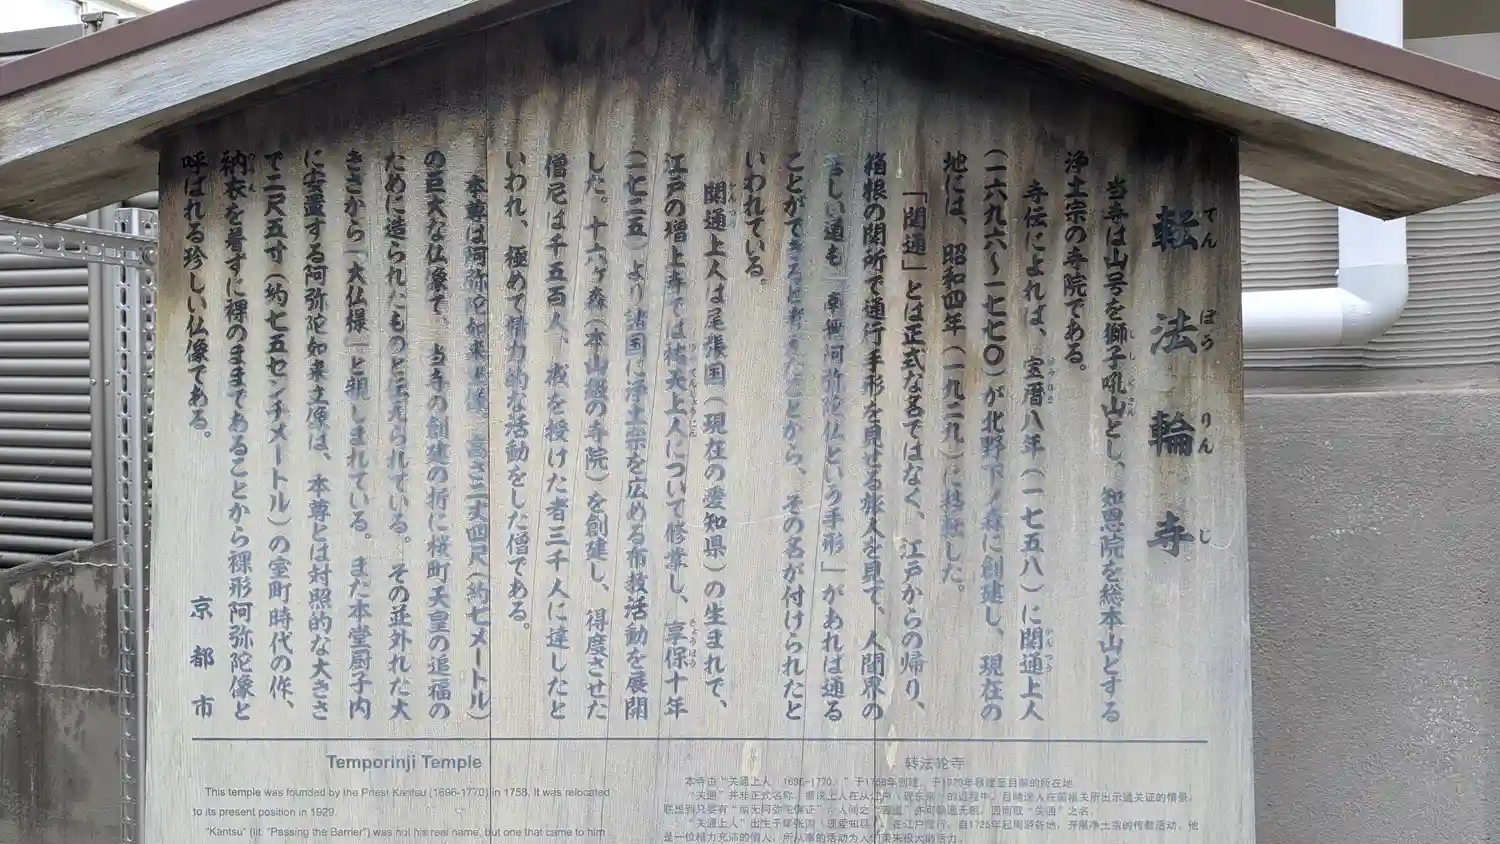 転法輪寺
てんぽうりんじ
当寺は山号を獅子吼山とし、知恩院を総本山とする
浄土宗の寺院である。
寺伝によれば、宝暦八年（一七五八）に関通上人
（一六九六～一七七〇）が北野下ノ森に創建し、現在の
地には、昭和四年（一九二九）に移転した。
「関通」とは正式な名ではなく、江戸からの帰り、
箱根の関所で通行手形を見せる旅人を見て、人間界の
苦しい道も、「南無阿弥陀仏という手形」があれば通る
ことができると考えたことから、その名が付けられたと
いわれている。
関通上人は尾張国（現在の愛知県）の生まれで、
江戸の増上寺では祐天上人について修業し、享保十年
（一七二五）より諸国に浄土宗を広める布教活動を展開
した。十六ヶ森（本山級の寺院）を創建し、得度させた
僧尼は千五百人、戒を授けた者三千人に達したと
いわれ、極めて精力的な活動をした僧である。
本尊は阿弥陀如来坐像 高さ二丈四尺（約七メートル）
の巨大な仏像で、当寺の創建の折に桜町天皇の追福の
ために造られたものと伝えられている。その並外れた大
きさから「大仏様」と親しまれている。また本堂厨子内
に安置する阿弥陀如来立像は、本尊とは対照的な大きさ
で二尺五寸（約七五センチメートル）の室町時代の作、
衲衣を着ずに裸のままであることから裸形阿弥陀像と
呼ばれる珍しい仏像である。
京都市
Temporinji Temple
This temple was founded by the Priest Kantsu (1696-1770) in 1758. It was relocated
to its present position in 1929.
"Kantsu" (lit. "Passing the Barrier") was not his real name, but one that came to him
转法轮寺
本寺由“关通上人（1696-1770）”于1758年创建，于1929年移建至目前的所在地。
“关通”并非正式名称，
“关通上人”出生于尾张国（现爱知县），在江户修行，自1725年起周游各地，开展净土宗的传教活动。他
是一位精力充沛的僧人，所从事的活动为人们带来极大的活力。